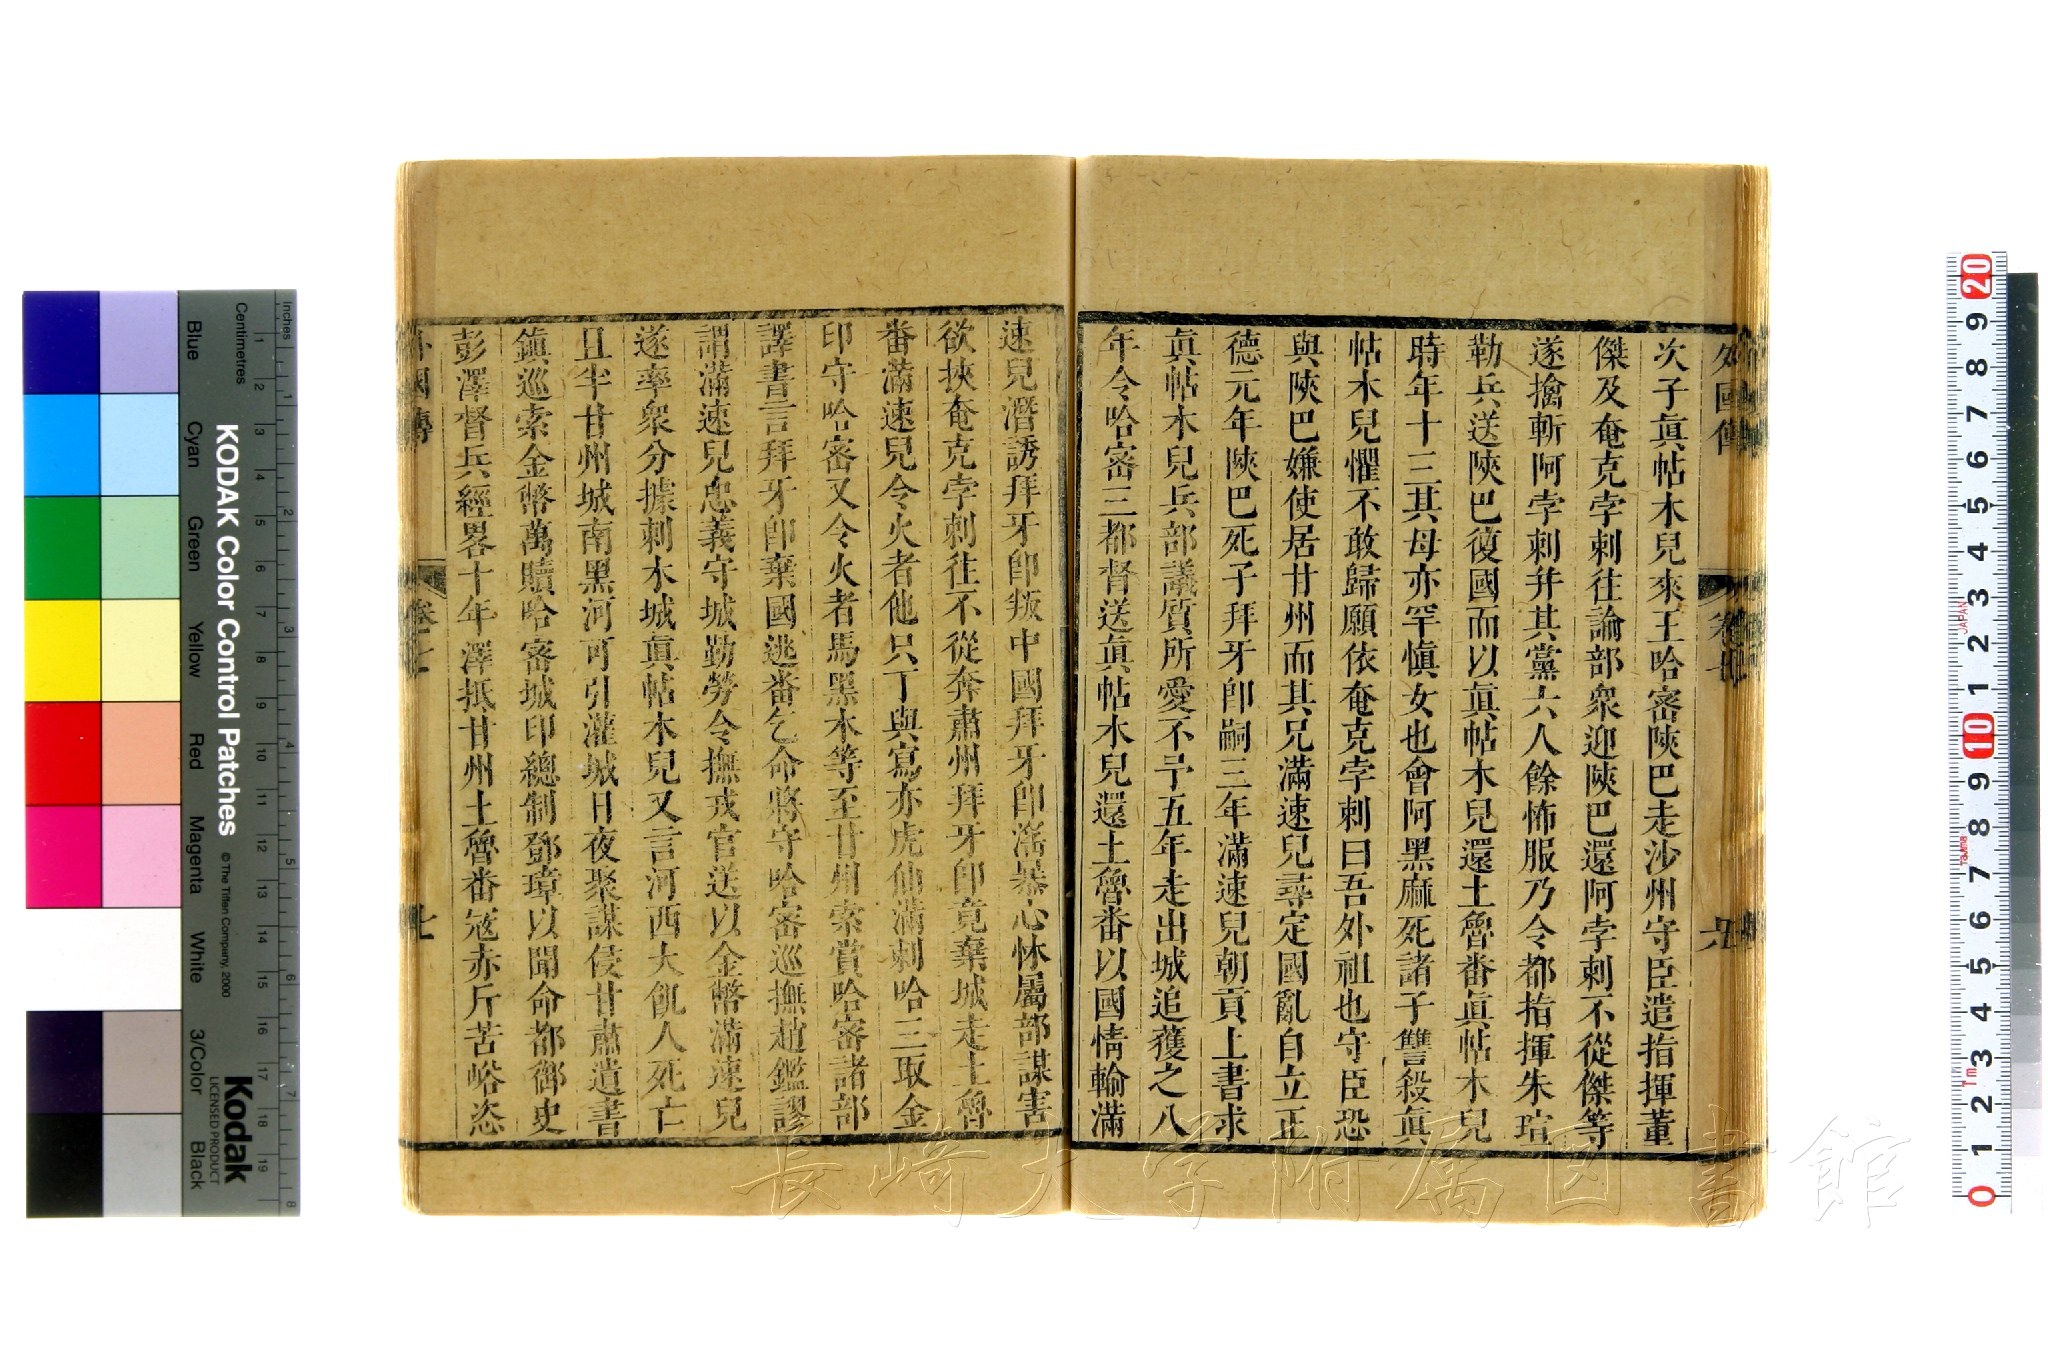 外國傳
卷七
次子眞帖木兒來王哈密陝巴走沙州守臣遣指揮董
傑及奄克孛剌往諭部衆迎陝巴還阿孛剌不從傑等
遂擒斬阿孛剌幷其黨六人餘怖服乃令都指揮朱瑄
勒兵送陝巴復國而以眞帖木兒還土魯番眞帖木兒
時年十三其母亦罕愼女也會阿黑麻死諸子讐殺眞
帖木兒懼不敢歸願依奄克孛剌曰吾外祖也守臣恐
與陝巴嫌使居甘州而其兄滿速兒尋定國亂自立正
德元年陝巴死子拜牙卽嗣三年滿速兒朝貢上書求
眞帖木兒兵部議質所愛不予五年走出城追獲之八
年令哈密三都督送眞帖木兒還土魯番以國情輸滿
速兒潛誘拜牙卽叛中國拜牙卽滛暴心怵屬部謀害
欲挾奄克孛剌往不從奔肅州拜牙卽竟棄城走土魯
番滿速兒令火者他只丁與寫亦虎仙滿剌哈三取金
印守哈密又令火者馬黑木等至甘州索賞哈密諸部
譯書言拜牙卽棄國逃番乞命將守哈密巡撫趙鑑謬
謂滿速兒忠義守城勤勞令撫戎官送以金幣滿速兒
遂率衆分據剌木城眞帖木兒又言河西大飢人死亡
且半甘州城南黑河可引灌城日夜聚謀侵甘肅遺書
鎭巡索金幣萬贖哈密城印總制鄧璋以聞命都御史
彭澤督兵經畧十年澤抵甘州土魯番寇赤斤苦峪恣
外國傳
卷七
七
長崎大学附属図書館
KODAK Color Control Patches
© The Tiffen Company, 2000
Kodak
LICENSED PRODUCT
Inches
Centimetres
Blue
Cyan
Green
Yellow
Red
Magenta
White
3/Color
Black
JAPAN
Tajima